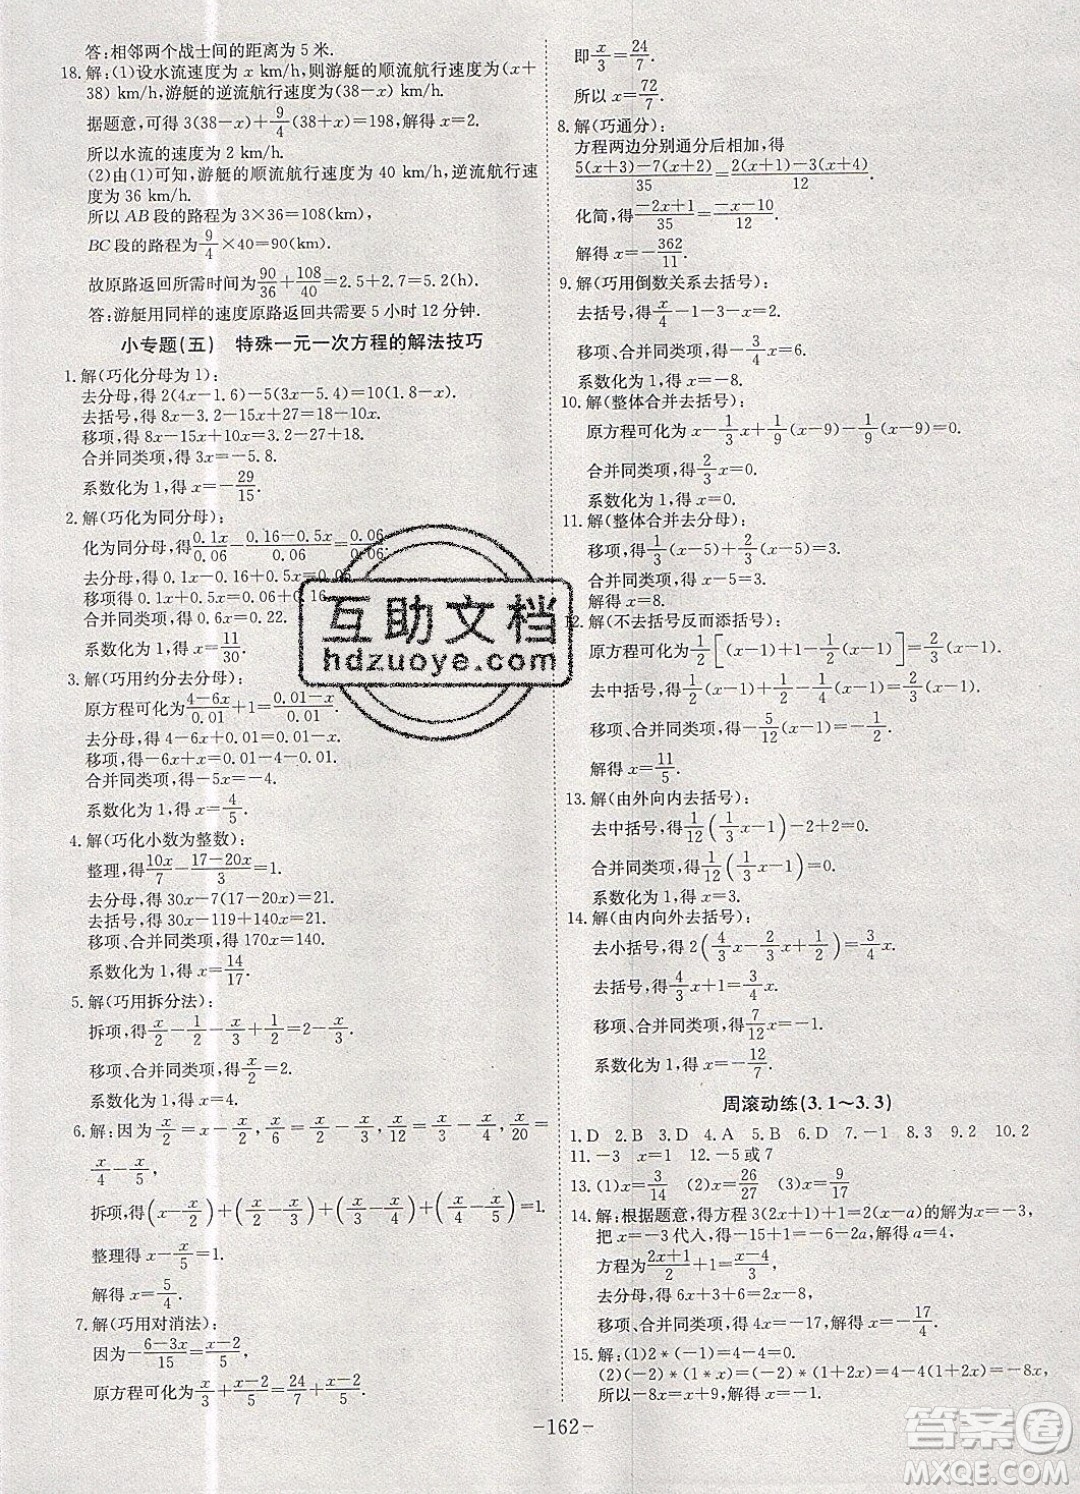 答:相邻两个战士间的距离为 5 米.
18. 解:(1)设水流速度为 x km/h,则游艇的顺流航行速度为(x+
38) km/h,游艇的逆流航行速度为(38-x) km/h.
据题意,可得 3(38-x)+9/4(38+x)=198,解得 x=2.
所以水流的速度为 2 km/h.
(2)由(1)可知,游艇的顺流航行速度为 40 km/h,逆流航行速
度为 36 km/h.
所以 AB 段的路程为 3×36=108(km),
BC 段的路程为 9/4×40=90(km).
故原路返回所需时间为 90/36+108/40=2.5+2.7=5.2(h).
答:游艇用同样的速度原路返回共需要 5 小时 12 分钟.
小专题(五) 特殊一元一次方程的解法技巧
1. 解(巧化分母为 1):
去分母,得 2(4x-1.6)-5(3x-5.4)=10(1.8-x).
去括号,得 8x-3.2-15x+27=18-10x.
移项,得 8x-15x+10x=3.2-27+18.
合并同类项,得 3x=-5.8.
系数化为 1,得 x=-29/15.
2. 解(巧化为同分母):
化为同分母,得 0.1x/0.06-(0.16-0.5x)/0.06=0.06/0.06.
去分母,得 0.1x-0.16+0.5x=0.06.
移项得 0.1x+0.5x=0.06+0.16.
合并同类项,得 0.6x=0.22.
系数化为 1,得 x=11/30.
3. 解(巧用约分去分母):
原方程可化为 (4-6x)/0.01+1=(0.01-x)/0.01.
去分母,得 4-6x+0.01=0.01-x.
移项,得 -6x+x=0.01-0.01-4.
合并同类项,得 -5x=-4.
系数化为 1,得 x=4/5.
4. 解(巧化小数为整数):
整理,得 10x/7-(17-20x)/3=1.
去分母,得 30x-7(17-20x)=21.
去括号,得 30x-119+140x=21.
移项、合并同类项,得 170x=140.
系数化为 1,得 x=14/17.
5. 解(巧用拆分法):
拆项,得 x/2-1/2-x/3+1/2=2-x/3.
移项、合并同类项,得 x/2=2.
系数化为 1,得 x=4.
6. 解:因为 x/2=x-x/2, x/6=x/2-x/3, x/12=x/3-x/4, x/20=
x/4-x/5,
拆项,得 (x-x/2)+(x/2-x/3)+(x/3-x/4)+(x/4-x/5)=1.
整理得 x-x/5=1.
解得 x=5/4.
7. 解(巧用对消法):
因为 -(6-3x)/15=(x-2)/5,
原方程可化为 x/3+(x-2)/5=24/7+(x-2)/5.
即 x/3=24/7.
所以 x=72/7.
8. 解(巧通分):
方程两边分别通分后相加,得
(5(x+3)-7(x+2))/35=(2(x+1)-3(x+4))/12.
化简,得 (-2x+1)/35=(-x-10)/12.
解得 x=-362/11.
9. 解(巧用倒数关系去括号):
去括号,得 x/4-1-3-x=2.
移项、合并同类项,得 -3/4x=6.
系数化为 1,得 x=-8.
10. 解(整体合并去括号):
原方程可化为 x-1/3x+1/9(x-9)-1/9(x-9)=0.
合并同类项,得 2/3x=0.
系数化为 1,得 x=0.
11. 解(整体合并去分母):
移项,得 1/3(x-5)+2/3(x-5)=3.
合并同类项,得 x-5=3.
解得 x=8.
12. 解(不去括号反而添括号):
原方程可化为 1/2[(x-1)+1-1/2(x-1)]=2/3(x-1).
去中括号,得 1/2(x-1)+1/2-1/4(x-1)=2/3(x-1).
移项、合并同类项,得 -5/12(x-1)=-1/2.
解得 x=11/5.
13. 解(由外向内去括号):
去中括号,得 1/12(1/3x-1)-2+2=0.
合并同类项,得 1/12(1/3x-1)=0.
系数化为 1,得 x=3.
14. 解(由内向外去括号):
去小括号,得 2(4/3x-2/3x+1/2)=3/4x.
去括号,得 4/3x+1=3/4x.
移项、合并同类项,得 7/12x=-1.
系数化为 1,得 x=-12/7.
周滚动练(3.1～3.3)
1. D 2. B 3. D 4. A 5. B 6. D 7. -1 8. 3 9. 2 10. 2
11. -3 x=1 12. -5 或 7
13. (1)x=3/14 (2)x=26/27 (3)x=9/17
14. 解:根据题意,得方程 3(2x+1)+1=2(x-a)的解为 x=-3,
把 x=-3 代入,得 -15+1=-6-2a,解得 a=4,
方程为 (2x+1)/2+1=(x-4)/3,
去分母,得 6x+3+6=2x-8,
移项、合并同类项,得 4x=-17,解得 x=-17/4.
15. 解:(1)2*(-1)=4-4=0.
(2)(-2)*(1*x)=(-2)*(1+2x)=4-4(1+2x)=-8x,
所以 -8x=x+9,解得 x=-1.
-162-
互助文档
hdzuoye.com
答案圈
MXQE.COM